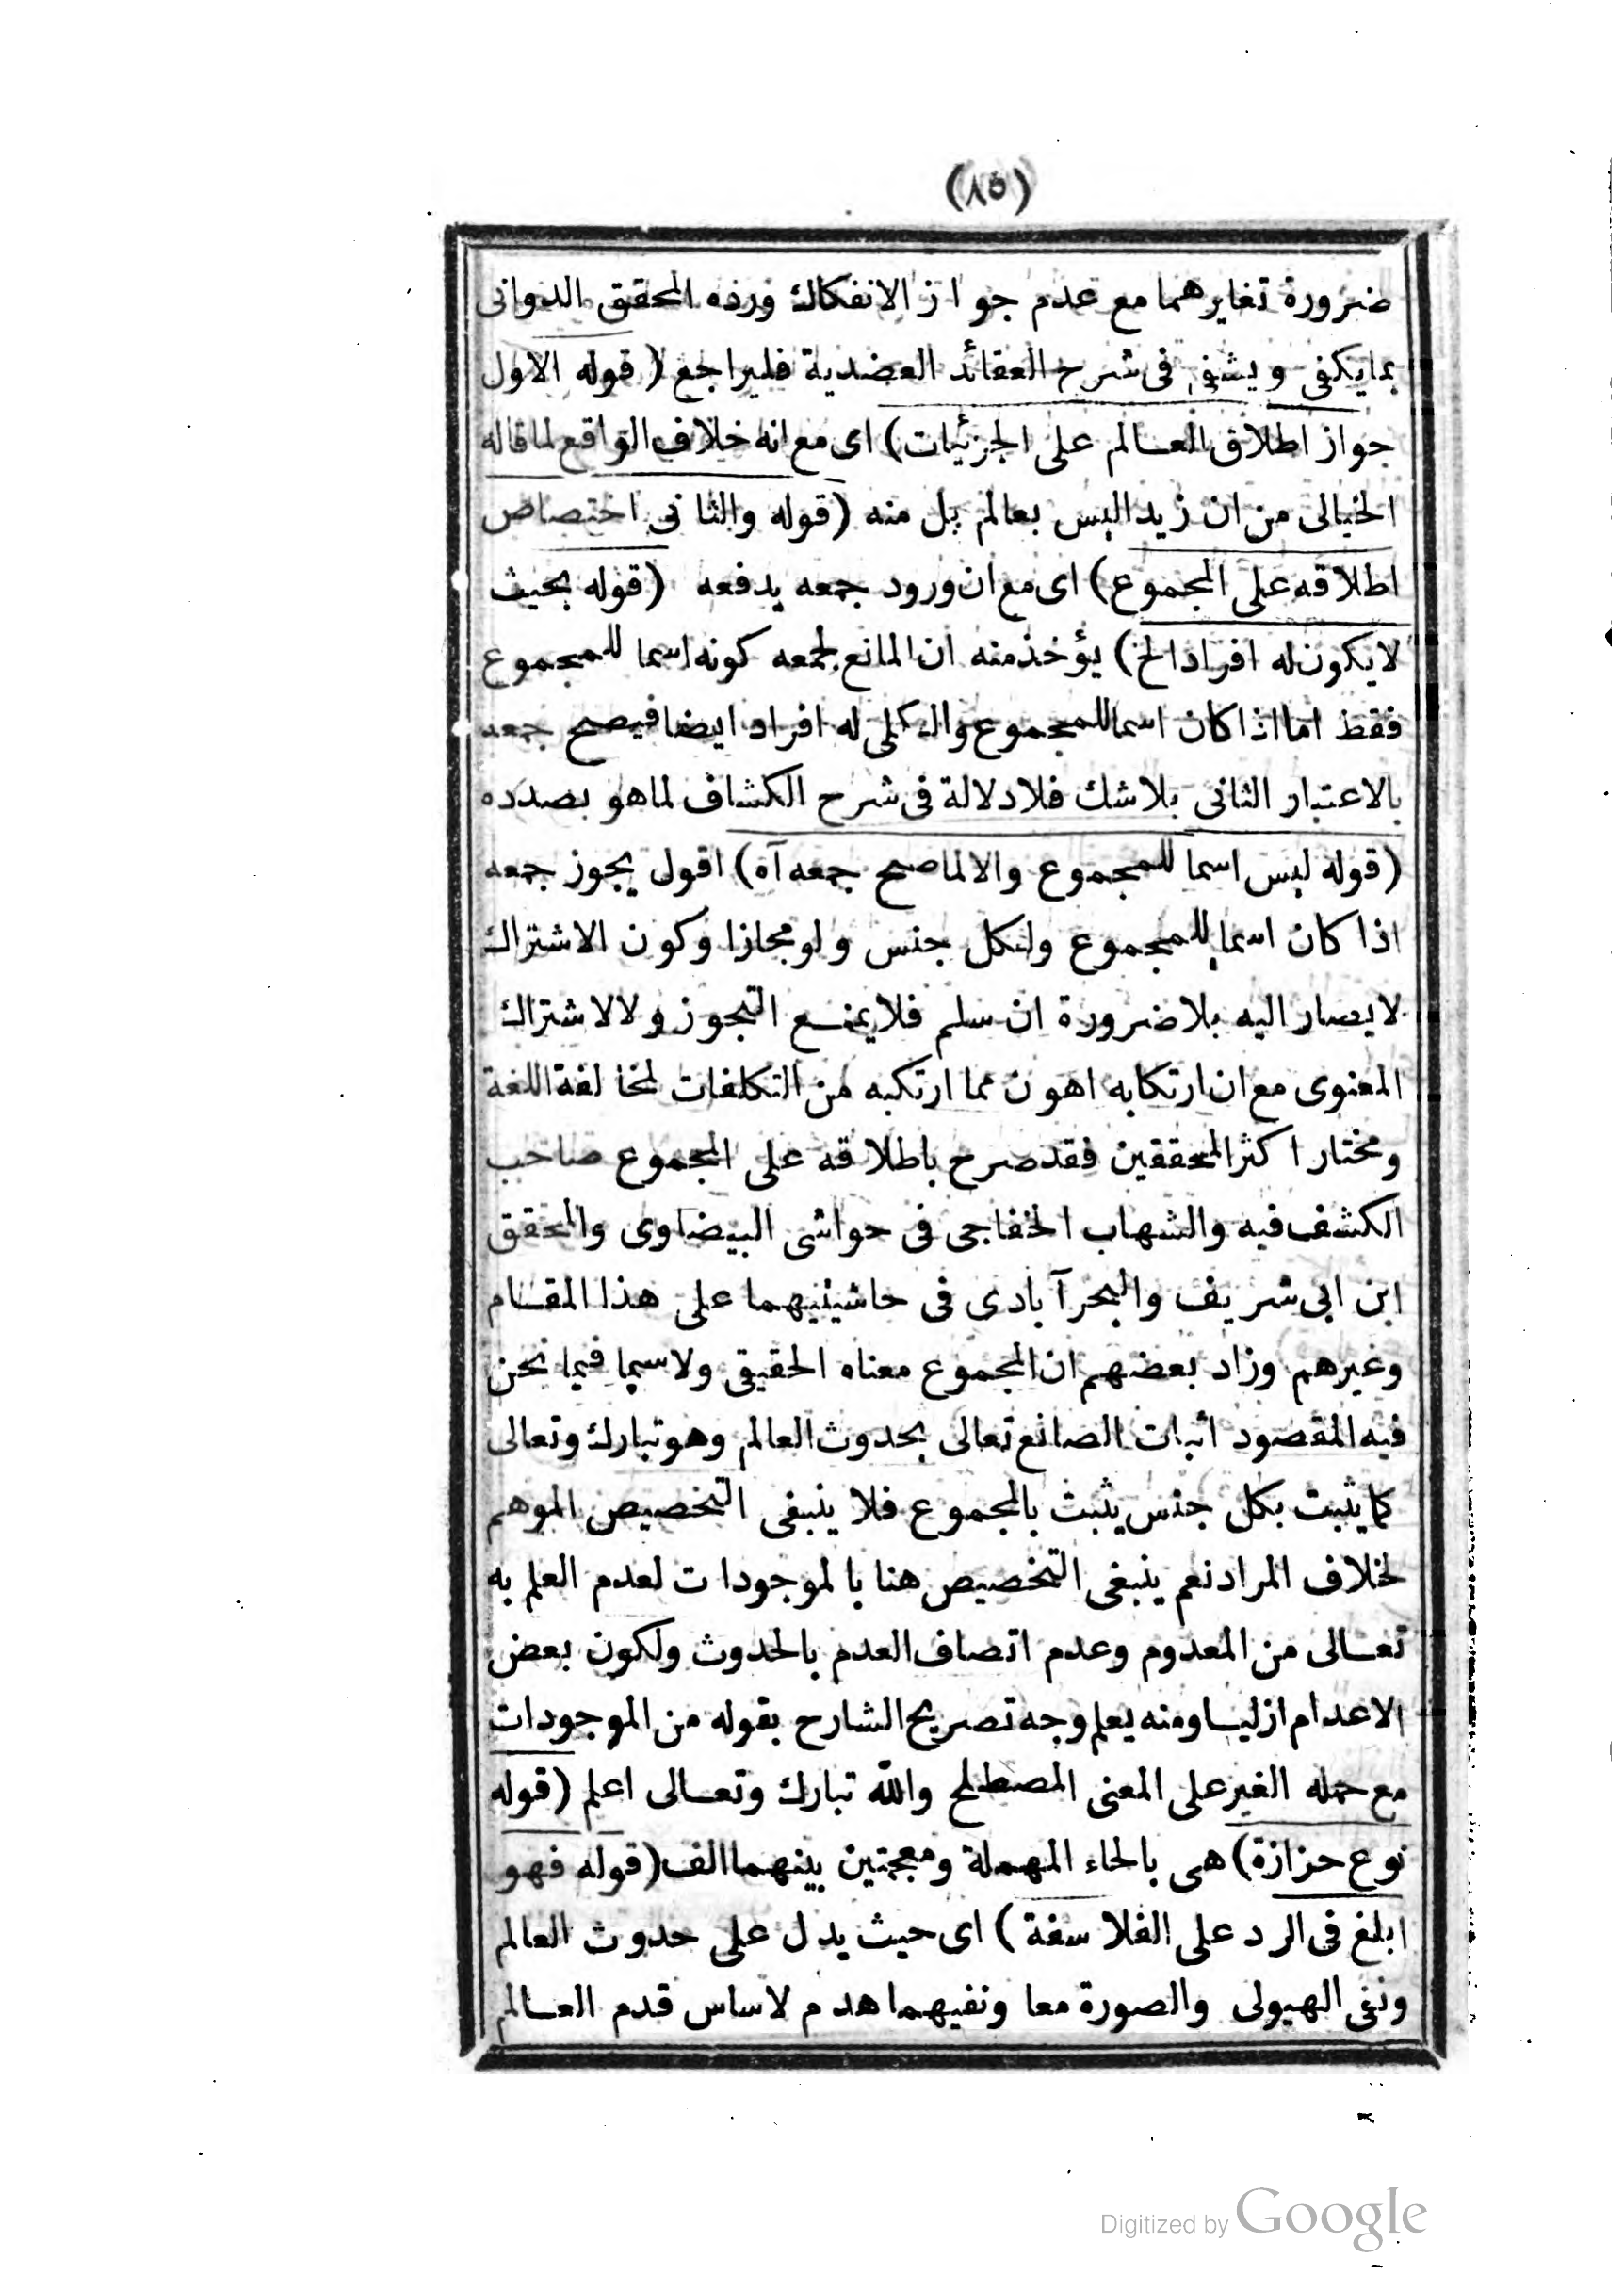 (٨٥)
ضرورة تغايرهما مع عدم جواز الانفكاك ورده المحقق الدوانى
بما يكفى ويشفى فى شرح العقائد العضدية فليراجع (قوله الاول
جواز اطلاق العالم على الجزئيات) اى مع انه خلاف الواقع لما قاله
الخيالى من ان زيدا ليس بعالم بل منه (قوله والثانى اختصاص
اطلاقه على المجموع) اى مع ان ورود جمعه يدفعه (قوله بحيث
لا يكون له افراد الخ) يؤخذ منه ان المانع لجمعه كونه اسما للمجموع
فقط اما اذا كان اسما للمجموع والكلى له افراد ايضا فيصح جمعه
بالاعتبار الثانى بلا شك فلا دلالة فى شرح الكشاف لما هو بصدده
(قوله ليس اسما للمجموع والا لما صح جمعه آه) اقول يجوز جمعه
اذا كان اسما للمجموع ولكل جنس ولو مجازا وكون الاشتراك
لا يصار اليه بلا ضرورة ان سلم فلا يمنع التجوز ولا لاشتراك
المعنوى مع ان ارتكابه اهون مما ارتكبه من التكلفات لمخالفة اللغة
ومختار اكثر المحققين فقد صرح باطلاقه على المجموع صاحب
الكشف فيه والشهاب الخفاجى فى حواشى البيضاوى والمحقق
ابن ابى شريف والبحرآبادى فى حاشيتيهما على هذا المقام
وغيرهم وزاد بعضهم ان المجموع معناه الحقيقى ولا سيما فيما نحن
فيه المقصود اثبات الصانع تعالى بحدوث العالم وهو تبارك وتعالى
كما يثبت بكل جنس يثبت بالمجموع فلا ينبغى التخصيص الموهم
لخلاف المراد نعم ينبغى التخصيص هنا بالموجودات لعدم العلم به
تعالى من المعدوم وعدم اتصاف العدم بالحدوث ولكون بعض
الاعدام ازليا ومنه يعلم وجه تصريح الشارح بقوله من الموجودات
مع حمله الغير على المعنى المصطلح والله تبارك وتعالى اعلم (قوله
نوع حزازة) هى بالحاء المهملة ومعجمتين بينهما الف (قوله فهو
ابلغ فى الرد على الفلاسفة) اى حيث يدل على حدوث العالم
ونفى الهيولى والصورة معا ونفيهما هدم لاساس قدم العالم
Digitized by Google